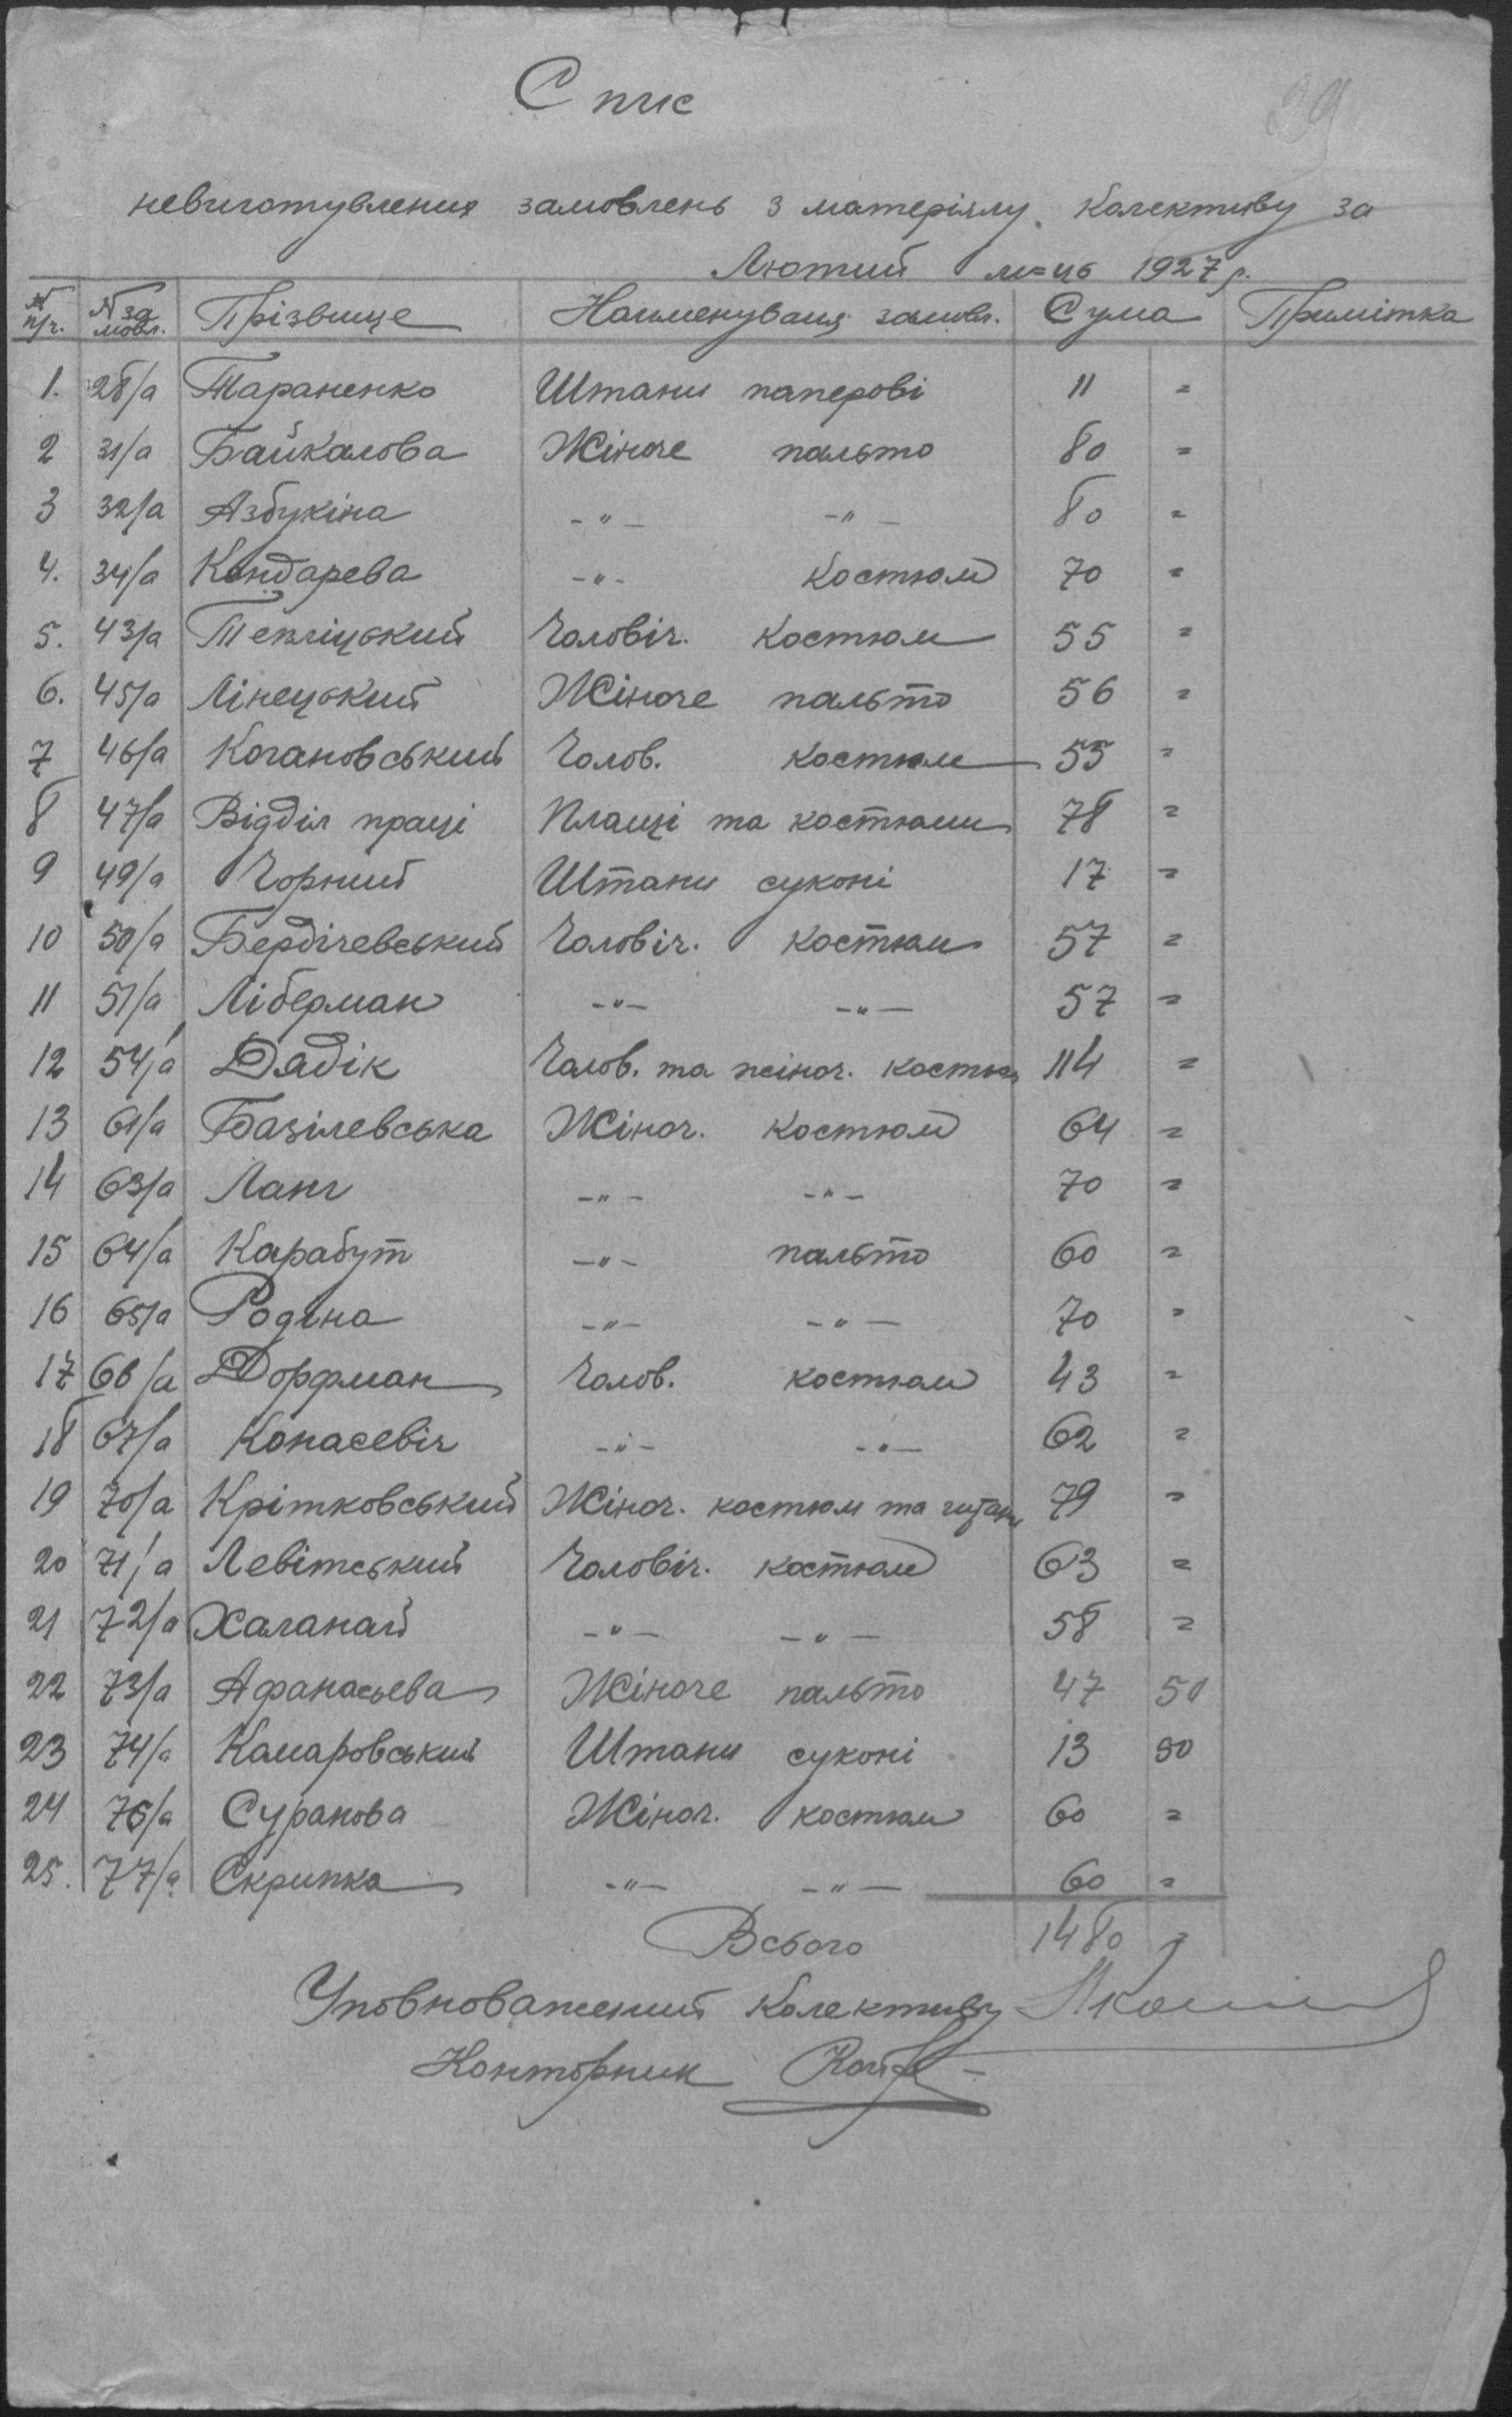 39
Спис
невиготувлених замовлень з матеріялу Колективу за
Лютий м=ць 1927 р.
№ п/ч. № за мовл. Прізвище Найменуваня замовл. Сума Примітка
1. 28/а Тараненко Штани паперові 11 =
2 31/а Байкалова Жіноче пальто 80 =
3 32/а Азбукіна -"- -"- 80 =
4. 34/а Кондарева -"- Костюм 70 =
5. 43/а Тепліцький Чоловіч. Костюм 55 =
6. 45/а Лінецький Жіноче пальто 56 =
7 46/а Когановський Чолов. костюм 55 =
8 47/а Відділ праці Плащі та костюми 78 =
9 49/а Чорний Штани суконі 17 =
10 50/а Бердічевський Чоловіч. костюм 57 =
11 51/а Ліберман -"- -"- 57 =
12 54/а Дядік Чолов. та жіноч. костюм 114 =
13 61/а Базілевська Жіноч. Костюм 64 =
14 63/а Ланг -"- -"- 70 =
15 64/а Карабут -"- пальто 60 =
16 65/а Родіна -"- -"- 70 =
17 66/а Дорфман Чолов. костюм 43 =
18 67/а Конасевіч -"- -"- 62 =
19 70/а Крітковський Жіноч. костюм та 79 =
20 71/а Левітський Чоловіч. костюм 63 =
21 72/а Халанай -"- -"- 58 =
22 73/а Афанасьева Жіноче пальто 47 50
23 74/а Камаровський Штани суконі 13 50
24 76/а Суранова Жіноч. костюм 60 =
25. 77/а Скрипка -"- -"- 60 =
Всього 1480 =
Уповноважений Колективу
Конторник